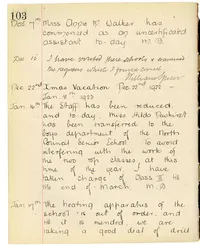 103
Dec 7th Miss Clogie M. Walker has
commenced as an uncertificated
assistant to-day. M.B.
Dec 16 I have visited these schools & examined
the registers which I found correct.
William
Dec 22nd Xmas Vacation Dec 22nd 1922 -
Jan 8th 1923
Jan 16th The Staff has been reduced
and to day, Miss Hilda
has been transferred to the
boys department of the North
Council Senior School. To avoid
interfering with the work of
the two top classes at this
time of the year I have
taken charge of Class III till
the end of March. M.B
Jan 17th The heating apparatus of the
school is out of order, and
till it is mended we are
taking a good deal of drill